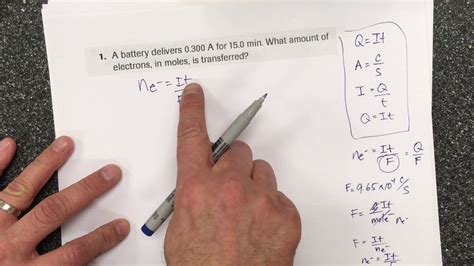 1. A battery delivers 0.300 A for 15.0 min. What amount of
electrons, in moles, is transferred?
ne- = It
Q = It
A = C/s
I = Q/t
Q = It
ne- = It/F = Q/F
F = 9.65x10⁴ C/s
F = It/mole ne-
F = It/ne-
ne- = It/F